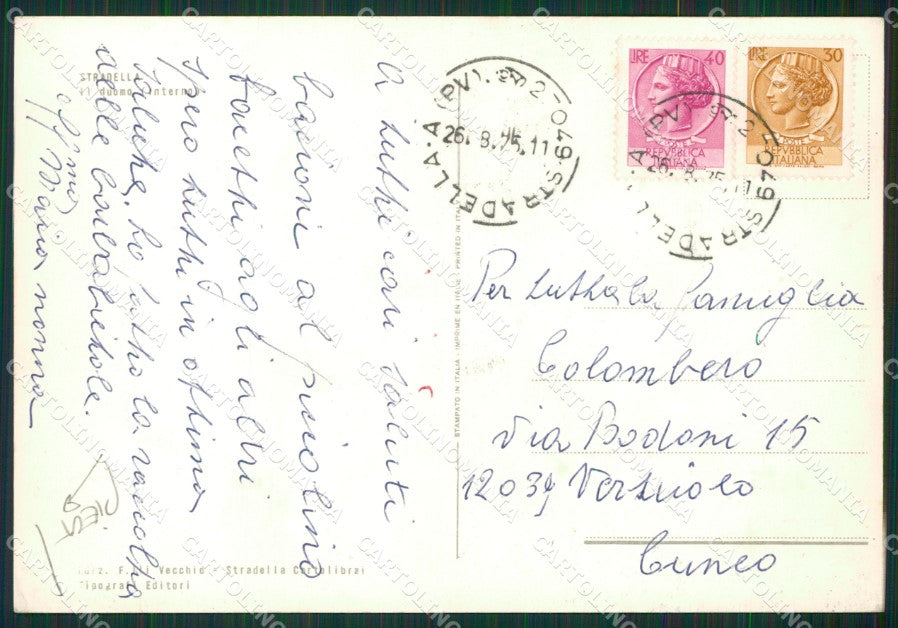 STRADELLA
Il duomo (interno)
A tutti cari saluti
bacioni al piccolino
bacetti agli altri.
Spero tutti in ottima
salute. Ho fatto la raccolta
delle barbabietole.
Maria nonna
PIEGA
Ediz. F.lli Vecchio - Stradella Cartolibrai
Tipografi Editori
STAMPATO IN ITALIA - IMPRIME EN ITALIE - PRINTED IN ITALY
STRADELLA (PV)
26.8.75.11
27049
LIRE 40
REPVBBLICA
ITALIANA
LIRE 30
REPVBBLICA
ITALIANA
STRADELLA (PV)
Per tutta la famiglia
Colombero
Via Bodoni 15
12039 Verzuolo
Cuneo
CARTOLINOMANIA